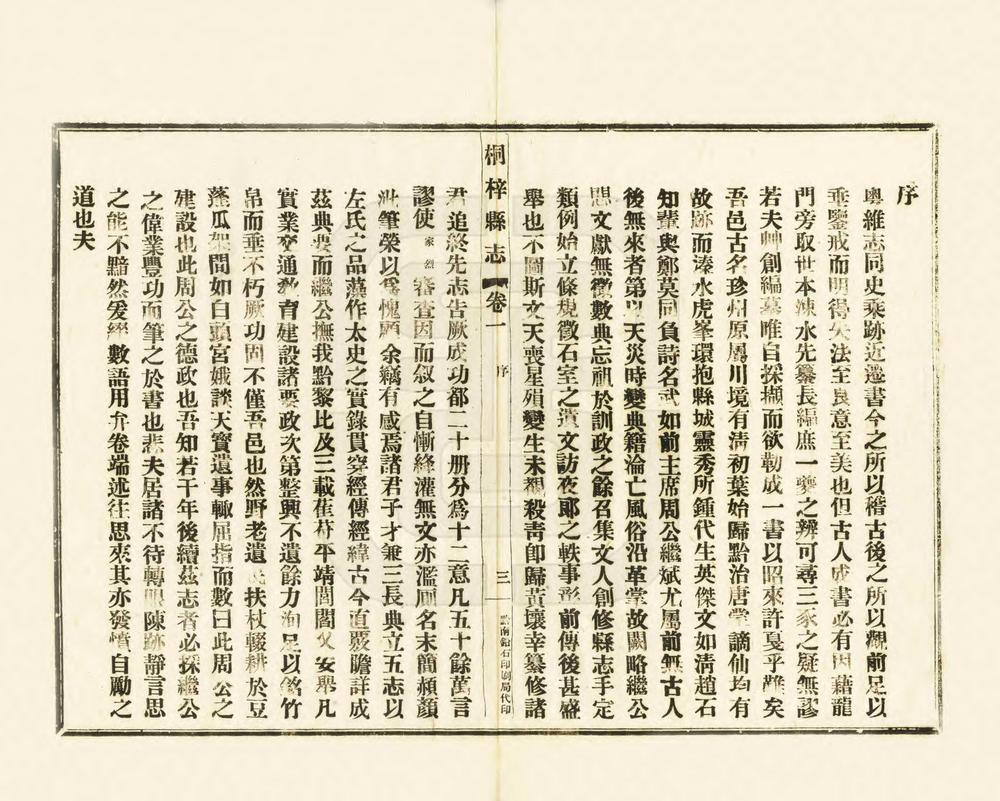 序
粵維志同史乘跡近邊書今之所以稽古後之所以觀前足以
垂鑒戒而明得失法至良意至美也但古人成書必有因藉龍
門旁取世本涑水先纂長編庶一夔之辨可尋三豕之疑無謬
若夫艸創編摹唯自採擷而欲勒成一書以昭來許戛乎難矣
吾邑古名珍州原屬川境有清初葉始歸黔治唐堂謫仙均有
故跡而溱水虎峯環抱縣城靈秀所鍾代生英傑文如清趙石
知輩與鄭莫同負詩名武如前主席周公繼斌尤屬前無古人
後無來者第以天災時變典籍淪亡風俗沿革堂故闕略繼公
思文獻無徵數典忘祖於訓政之餘召集文人創修縣志手定
類例始立條規徵石室之遺文訪夜郎之軼事彰前傳後甚盛
舉也不圖斯文天喪星殞變生未覩殺靑卽歸黃壤幸纂修諸
桐梓縣志 卷一 序 三 黔南鉛石印刷局代印
君追終先志告厥成功都二十册分爲十二意凡五十餘萬言
謬使家烈審査因而敍之自慚絳灌無文亦濫厠名末簡頳顏
泚筆榮以爲愧顧余竊有感焉諸君子才兼三長典立五志以
左氏之品藻作太史之實錄貫穿經傳經緯古今直覈瞻詳成
茲典要而繼公撫我黔黎比及三載萑苻平靖閭閻乂安舉凡
實業交通敎育建設諸要政次第整興不遺餘力洵足以銘竹
帛而垂不朽厥功固不僅吾邑也然野老遺 扶杖輟耕於豆
蓬瓜架間如白頭宮娥談天寳遺事輙屈指而數曰此周公之
建設也此周公之德政也吾知若干年後續茲志者必採繼公
之偉業豐功而筆之於書也悲夫居諸不待轉眼陳跡靜言思
之能不黯然爰綴數語用弁卷端述往思來其亦發憤自勵之
道也夫